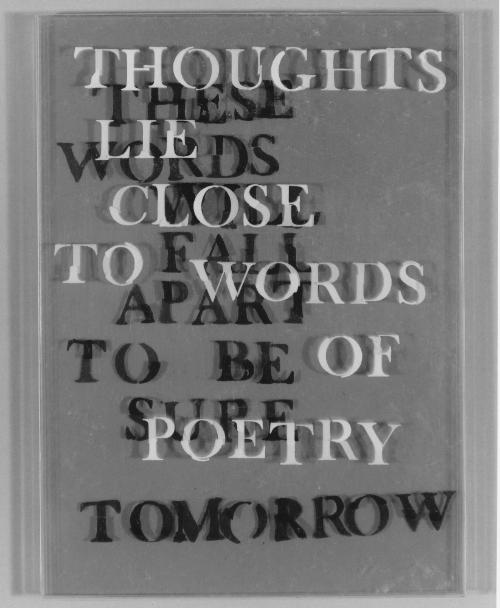 THOUGHTS
THESE
LIE
WORDS
CLOSE
WILL
FALL
TO WORDS
APART
TO BE
OF
SURE
POETRY
TOMORROW